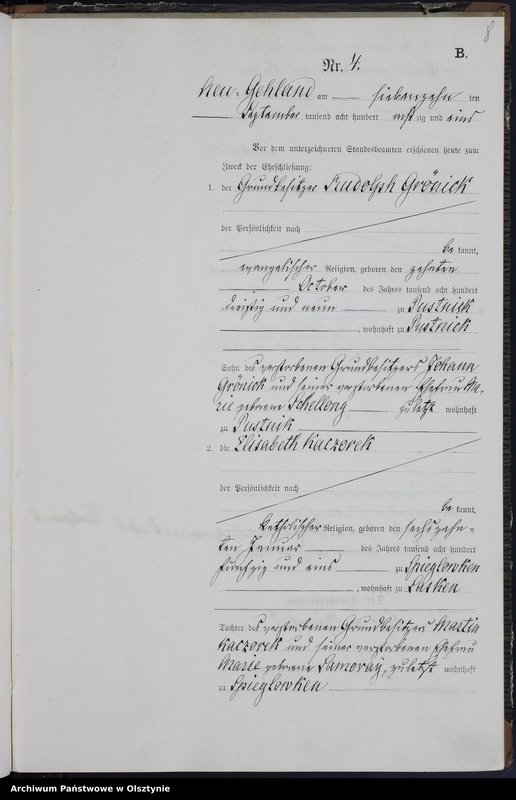 8
B.
Nr. 4.
Neu-Gehland am siebenzehn ten
September tausend acht hundert acht zig und eins
Vor dem unterzeichneten Standesbeamten erschienen heute zum
Zweck der Eheschließung:
1. der Grundbesitzer Rudolph Grönick
der Persönlichkeit nach
be kannt,
evangelischer Religion, geboren den zehnten
October des Jahres tausend acht hundert
dreißig und neun zu Pustnick
, wohnhaft zu Pustnick
Sohn des verstorbenen Grundbesitzers Johann
Grönick und seiner verstorbenen Ehefrau Ma-
rie geborene Schellong zuletzt wohnhaft
zu Pustnik
2. die Elisabeth Kaczorek
der Persönlichkeit nach
be kannt,
katholischer Religion, geboren den sechszehn-
ten Januar des Jahres tausend acht hundert
fünfzig und eins zu Spieglowken
, wohnhaft zu Lasken
Tochter des verstorbenen Grundbesitzers Martin
Kaczorek und seiner verstorbenen Ehefrau
Marie geborene Samoray, zuletzt wohnhaft
zu Spieglowken
Archiwum Państwowe w Olsztynie